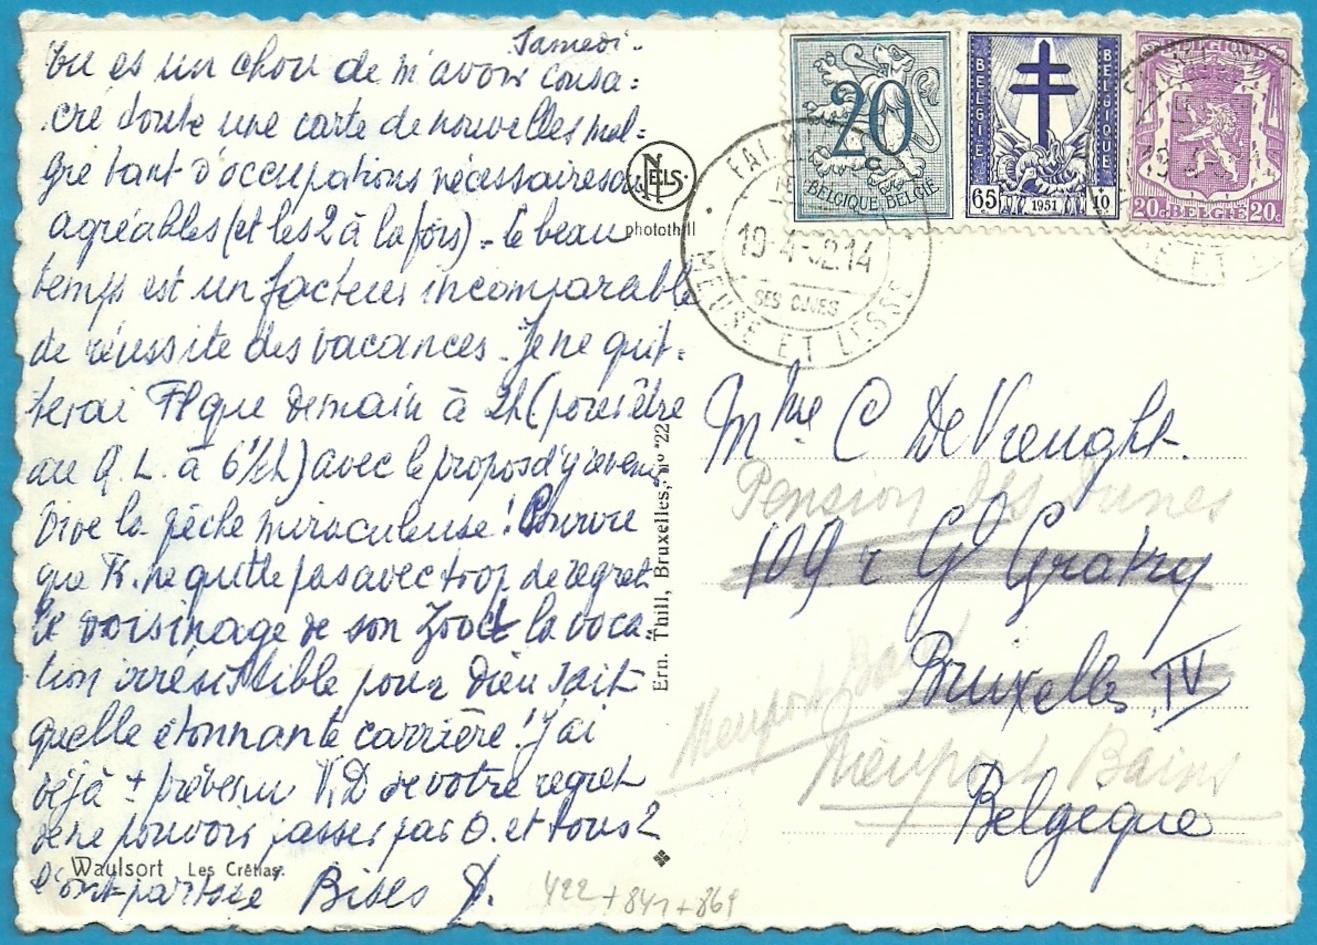 Samedi.
Tu es un chou de m'avoir consa=
cré toute une carte de nouvelles mal=
gré tant d'occupations nécessaires ou
agréables (et les 2 à la fois) - le beau
temps est un facteur incomparable
de réussite des vacances. Je ne quit=
terai que demain à 2h (pour être
au Q. L. à 6½h) avec le propos d'y revenir
Vive la pêche miraculeuse! Pourvu
que Fr. ne quitte pas avec trop de regret
le voisinage de son Zoo et la voca=
tion irrésistible pour Dieu sait
quelle étonnante carrière! J'ai
déjà ± prévenu V.D de votre regret
de ne pouvoir passer par O. et tous 2
l'ont partagé Bises
Waulsort Les Crêtias.
422 + 841 + 869
NELS
photothill
Ern. Thill, Bruxelles, n° 22
20 c
BELGIQUE BELGIË
BELGIË BELGIQUE
65 1951 + 10
BELGIQUE
20c BELGIE 20c
FAL
19-4-52.14
MEUSE ET LESSE
E ET L
Mme C De Vreught.
Pension des Dunes
109 r Gl Gratry
Bruxelles IV
Nieuport Bains
Nieuport Bains
Belgique